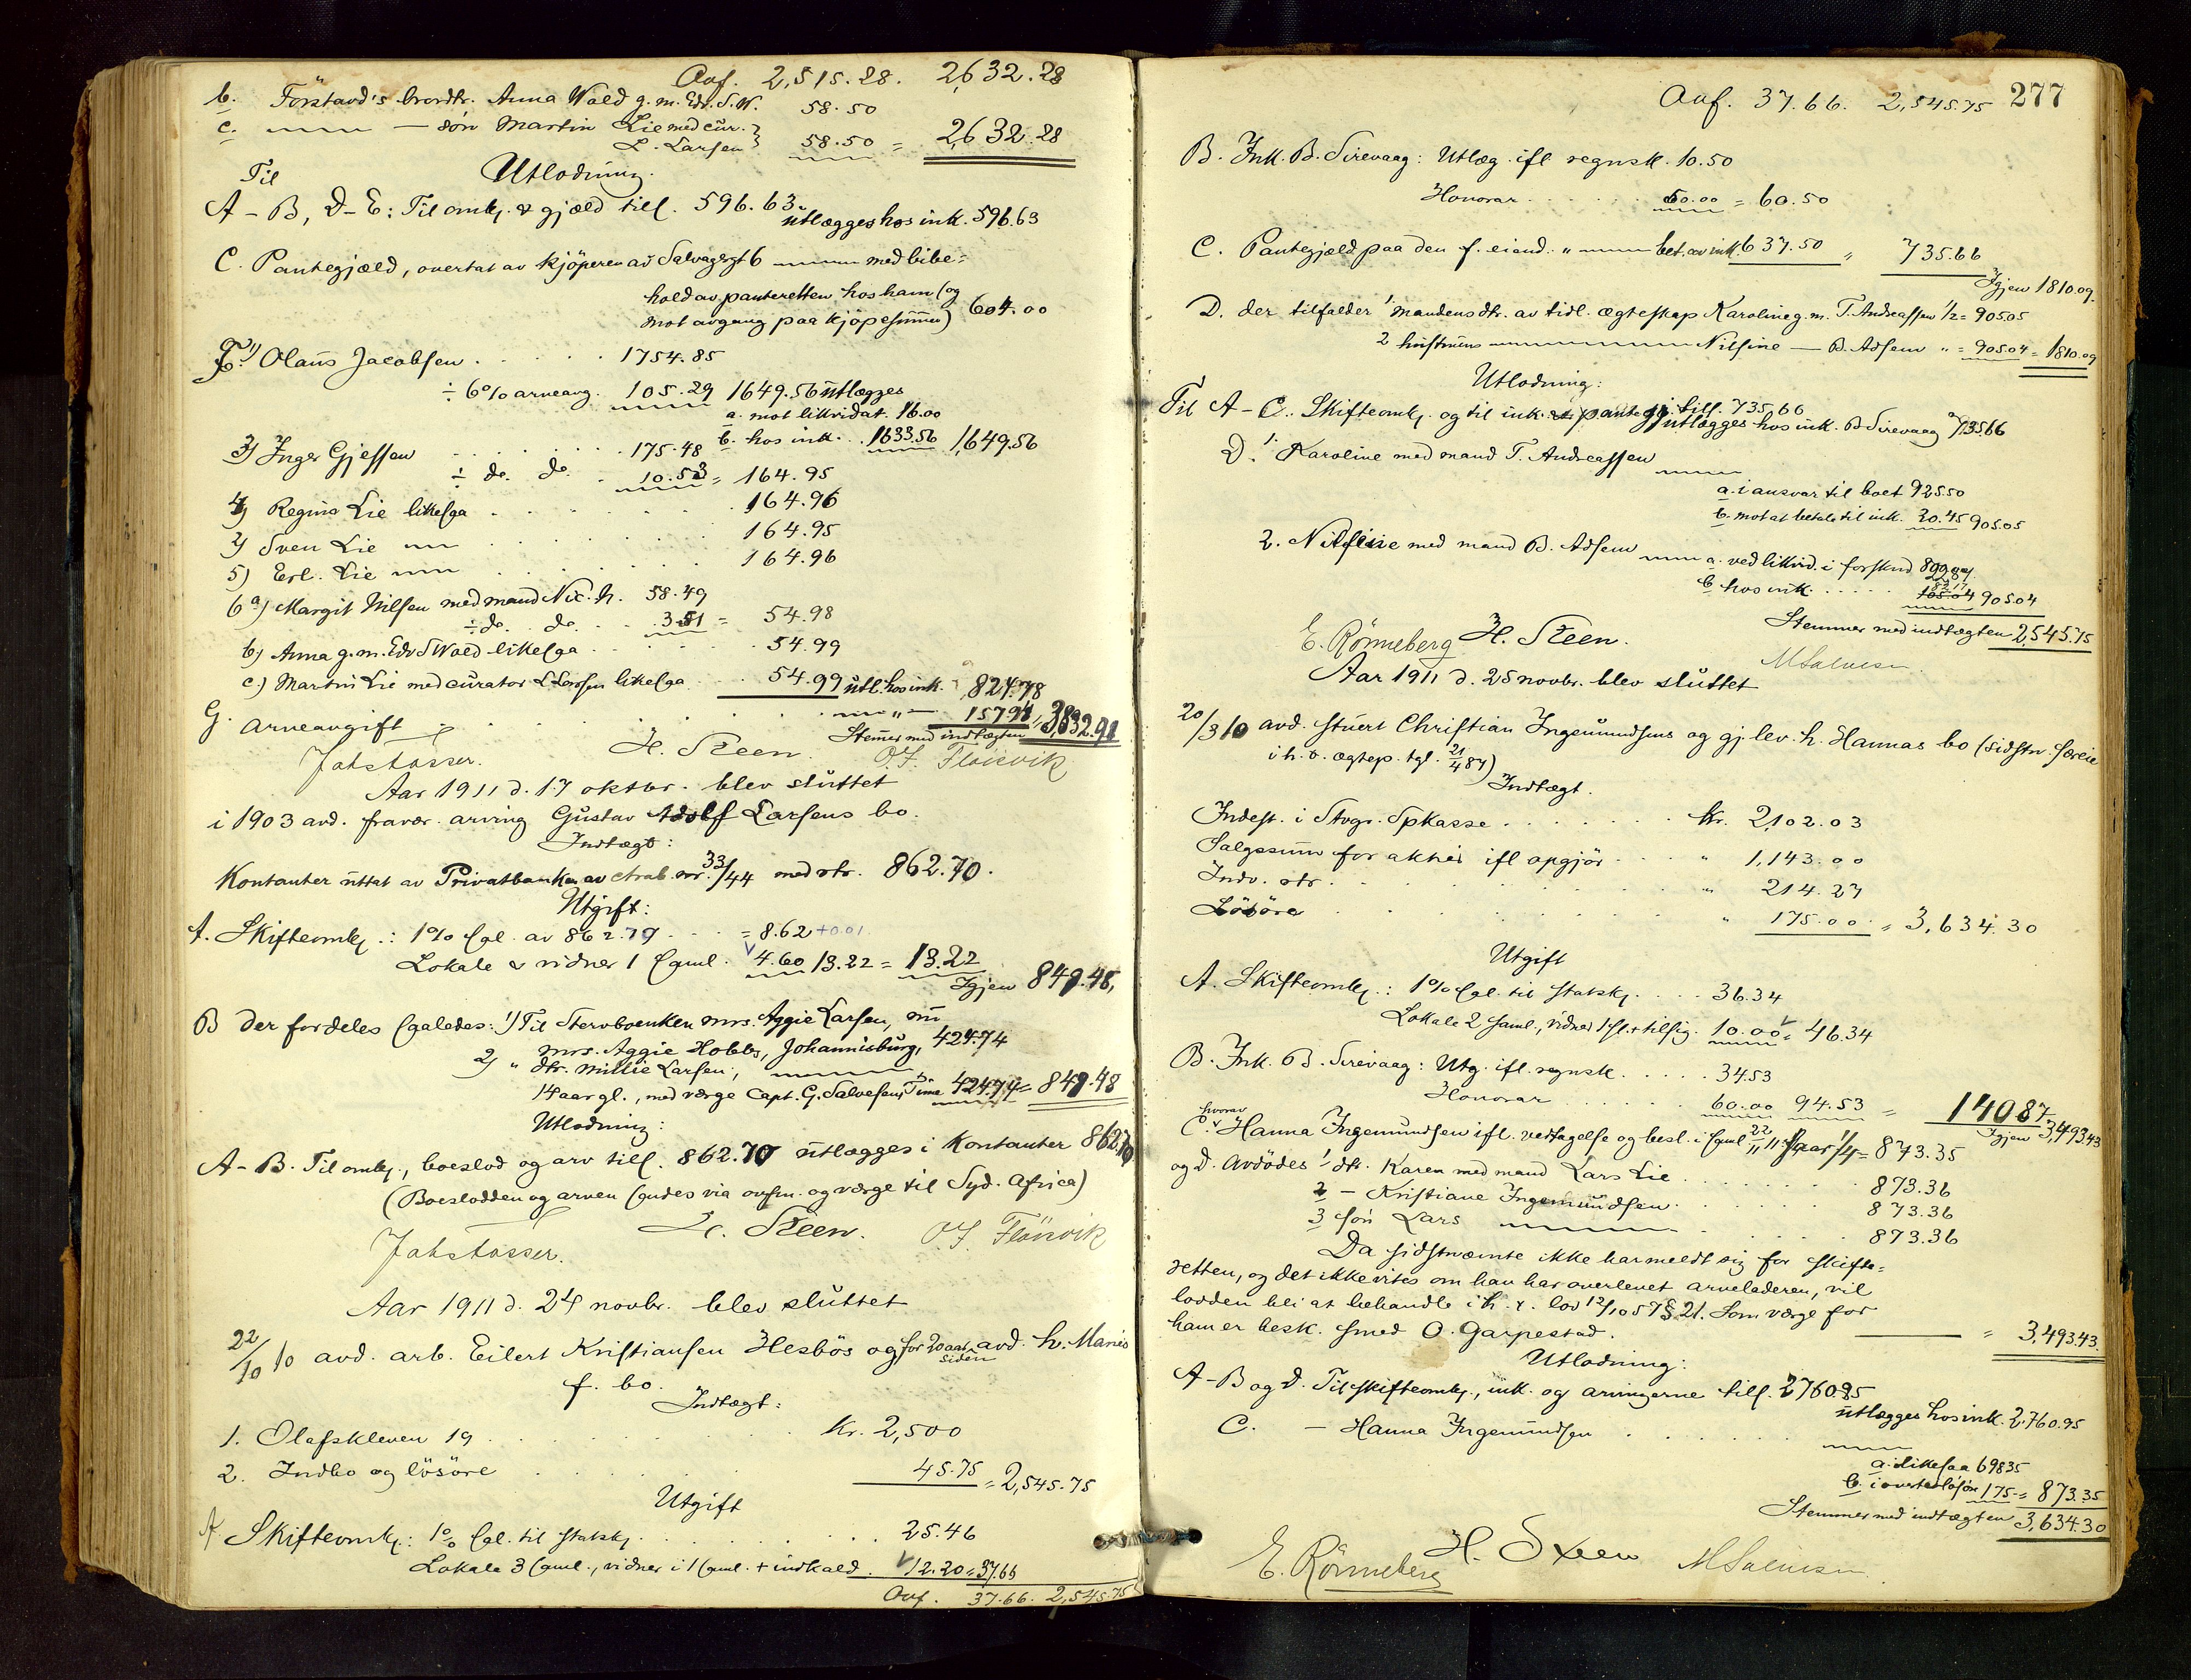 Ovf. 2,515.28. 2,632.28
b. Förstavd's brordtr. Anna Wold g. m. Edv. S. W. 58.50
c. — søn Martin Lie med cur. L. Larsen 58.50 = 2,632.28
Utlodning.
Til
A-B, D-E: Til omk. & gjæld till. 596.63 utlægges hos ink. 596.63
C. Pantegjæld, overtat av kjöperen av Salvagergt 6 med bibe=
hold av panteretten hos ham (og
mot avgang paa kjöpesummen) 604.00
F. 1) Olaus Jacobsen . . . . 1754.85
÷ 6% arveavg. 105.29 1649.56 utlægges
a. mot likvidat. 16.00
b. hos ink. . 1633.56 1,649.56
3) Inger Gjessen . . . . . 175.48
÷ do. do. . 10.53 = 164.95
4) Regina Lie likesaa . . . . 164.96
2) Sven Lie . . . . 164.95
5) Erl. Lie . . . . 164.96
6 a) Margit Nilsen med mand Nic. N. 58.49
÷ do. do. . . 3.51 = 54.98
b) Anna g. m. Edv S Wold likesaa . . . 54.99
c) Martin Lie med curator L Larsen likesaa . . 54.99 utl. hos ink. 824.78
G. Arveavgift . . . . . . — „ — 157.94 = 3,832.91
Stemmer med indtægten
H. Steen. O. J. Flöisvik
Aar 1911 d. 17 oktbr. blev sluttet
i 1903 avd. fravær. arving Gustav Adolf Larsens bo.
Indtægt:
Kontanter uttat av Privatbanken av ctrab. nr. 33/44 med rtr. 862.70.
Utgift:
A. Skifteomk.: 1% sal. av 862.70 . . . = 8.62 +0.01
Lokale & vidner 1 saml. 4.60 13.22 = 13.22
Igjen 849.48,
B der fordeles saaledes: 1) Til Stervboenken mrs. Aggie Larsen, nu
mrs. Aggie Hobbs, Johannisburg, 424.74
2) „ dtr. Millie Larsen,
14 aar gl., med værge Capt. G. Salvesen, Time 424.74 = 849.48
Utlodning:
A-B. Til omk., boeslod og arv till. 862.70 utlægges i Kontanter 862.70
(Boeslodden og arven sendes via ovfm. og værge til Syd. Africa)
H. Steen. O. J. Flöisvik
Aar 1911 d. 24 novbr. blev sluttet
22/10 10 avd. arb. Eilert Kristiansen Hesbös og for 20 aar siden avd. h. Maries
f. bo.
Indtægt:
1. Olafskleven 19 . . . . . Kr. 2,500
2. Indbo og lösöre . . . . 45.75 = 2,545.75
Utgift
A. Skifteomk.: 1% sal. til statsk. . . . . 25.46
Lokale 3 saml., vidner i 1 saml. + indkald. 12.20 = 37.66
Ovf. 37.66. 2,545.75
277
Ovf. 37.66. 2,545.75
B. Ink. B. Sirevaag: Utlæg. ifl regnsk. 10.50
Honorar . . . . 50.00 = 60.50
C. Pantegjæld paa den f. eiend. „ bet. av ink. 637.50 „ 735.66
Igjen 1810.09.
D. der tilfalder 1 mandens dtr. av tidl. ægteskap Karoline g. m. T. Andreassen 1/2 = 905.05
2 hustruens Nilsine — B. Adsem „ = 905.04 = 1810.09
Utlodning:
Til A-C. Skifteomk. og til ink. pantegj. till. 735.66
utlægges hos ink. B Sirevaag 735.66
D. 1. Karoline med mand T. Andreassen
a. i ansvar til boet 925.50
b. mot at betale til ink. 20.45 905.05
2. Nilsine med mand B. Adsem a. ved likvid. i forskud 899.87
b. hos ink. . . . . 905.04
Stemmer med indtægten 2,545.75
E. Rönneberg H. Steen. M Salvesen.
Aar 1911 d. 25 novbr. blev sluttet
20/3 10 avd. stuert Christian Ingemundsens og gj. lev. h. Hannas bo (sidstn. særeie
i h. t. ægtep. tgl. 21/4 87)
Indtægt.
Indest. i Stvgr. Spkasse . . . . . . Kr. 2,102.03
Salgssum for aktier ifl opgjör . . . „ 1,143.00
Indv. rtr. . . . . . . „ 214.27
Lösöre . . . . . . „ 175.00 = 3,634.30
Utgift
A. Skifteomk.: 1% sal. til statsk. . . . 36.34
Lokale 2 saml., vidner 1 sl. + tilsig. 10.00 = 46.34
B. Ink. B. Sirevaag: Utg. ifl. regnsk. . . . . 34.53
Honorar . . . . 60.00 94.53 = 140.87
Igjen 3,493.43
hvorav
C. Hanna Ingemundsen ifl. vedtagelse og besl. i saml 22/11 11 faar 1/4 = 873.35
og D. Avdödes 1 dtr. Karen med mand Lars Lie . . . . . . 873.36
2 — Kristiane Ingemundsen . . . . . 873.36
3 søn Lars . . . . 873.36
Da sidstnævnte ikke har meldt sig for skifte=
retten, og det ikke vites om han har overlevet arveladeren, vil
lodden bli at behandle i h. t. lov 12/10 57 § 21. Som værge for
ham er besk. smed O. Garpestad. = 3,493.43.
Utlodning:
A-B og D. Til skifteomk., ink. og arvingerne till. 2760.95
utlægges hos ink. 2,760.95
C. — Hanna Ingemundsen . . . . .
a. likesaa 698.35
b. i overtat lösöre 175 = 873.35
Stemmer med indtægten 3,634.30
E. Rönneberg H. Steen M Salvesen.